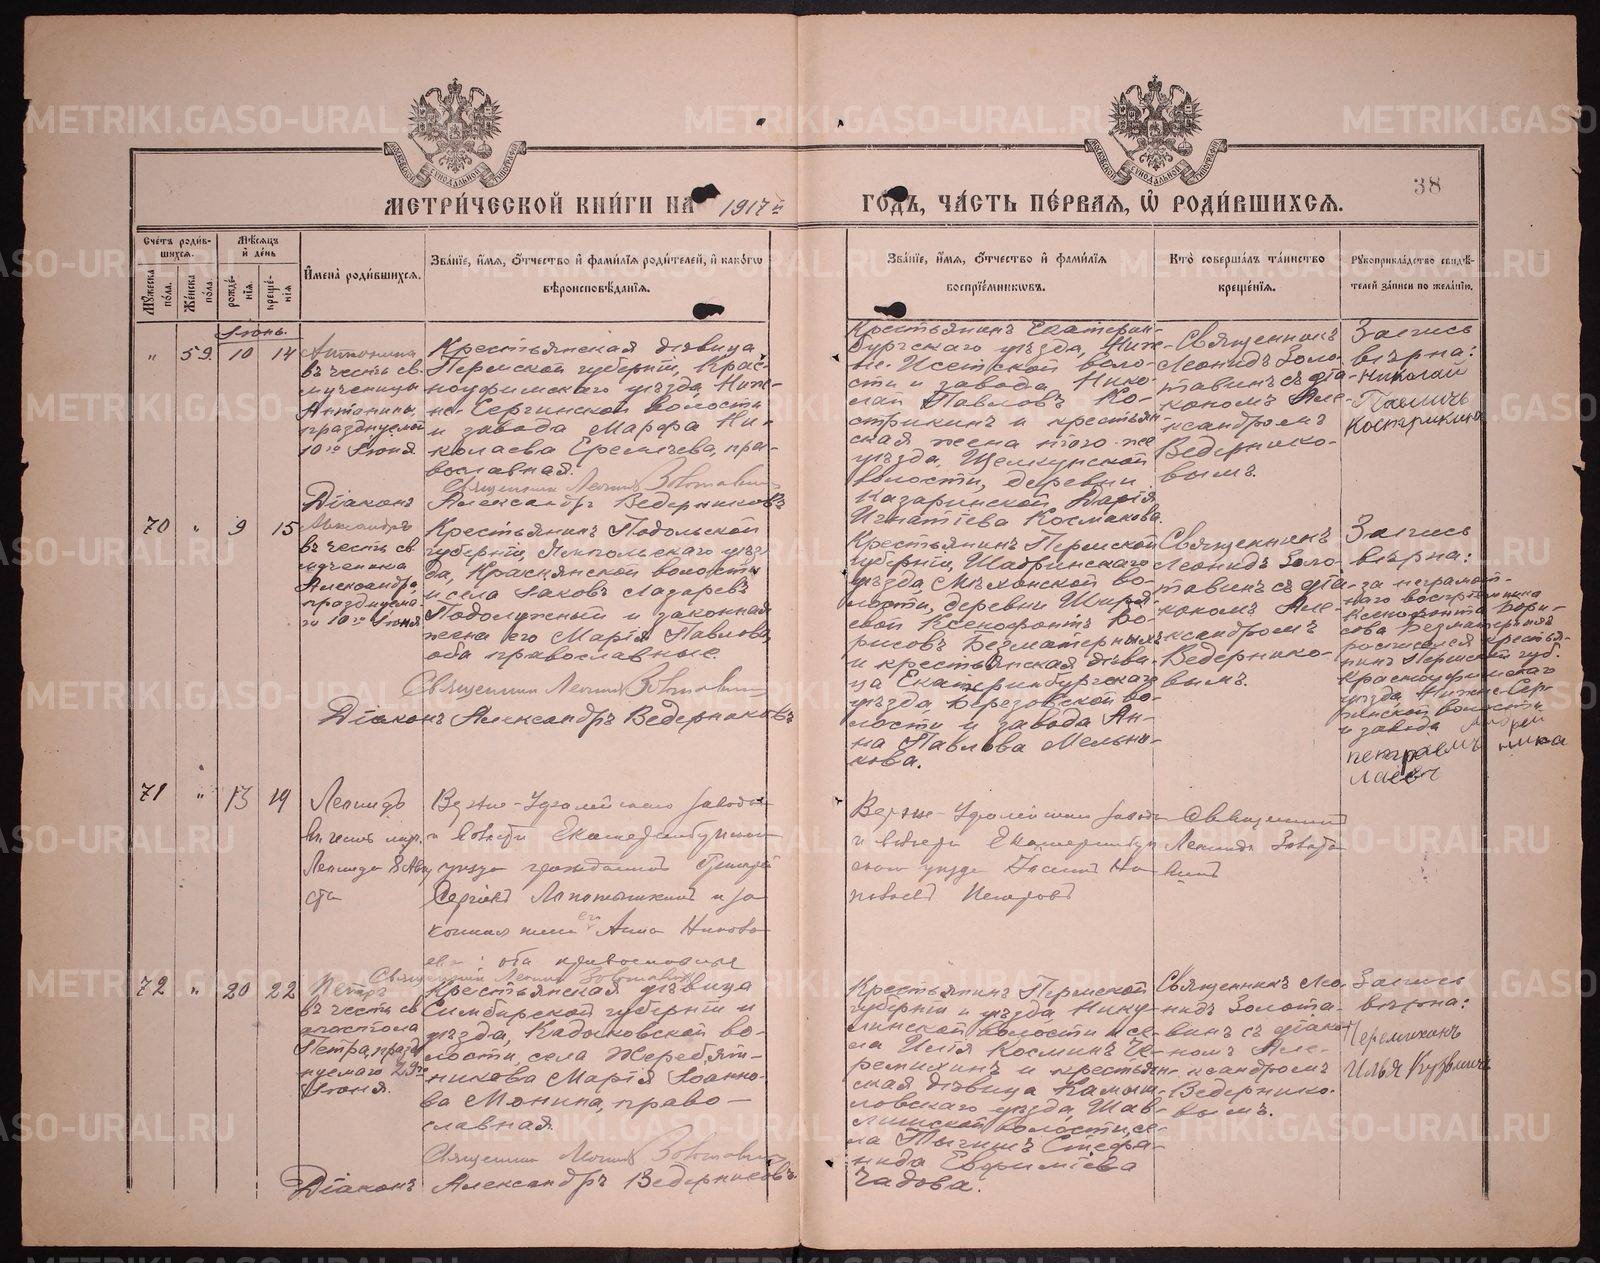 38
МЕТРИЧЕСКОЙ КНИГИ НА 1917й ГОДЪ, ЧАСТЬ ПЕРВАЯ, Ѡ РОДИВШИХСЯ.
Счетъ родившихся.
Мужеска пола.
Женска пола.
Мѣсяцъ и день
рожденія.
крещенія
Имена родившихся.
Званіе, имя, отчество и фамилія родителей, и какогѡ вѣроисповѣданія.
Званіе, имя, отчество и фамилія воспріемникѡвъ.
Кто совершалъ таинство крещенія.
Рукоприкладство свидѣтелей записи по желанію.
Іюнь.
" 59 10 14
Антонина
въ честь св.
мученицы
Антонины,
празднуемой
10го Іюня
Крестьянская дѣвица
Пермской губерніи, Крас-
ноуфимскаго уѣзда, Ниж-
не-Сергинской волости
и завода Марфа Ни-
колаева Еремѣева, пра-
вославная.
Священникъ Леонидъ Золотавинъ
Діаконъ Александръ Ведерниковъ
Крестьянинъ Екатерин-
бургскаго уѣзда, Ниж-
не-Исетской воло-
сти и завода Нико-
лай Павловъ Ко-
стрикинъ и крестьян-
ская жена того-же
уѣзда, Щелкунской
волости, деревни
Казаринской Дарія
Игнатіева Космакова.
Священникъ
Леонидъ Золо-
тавинъ съ діа-
кономъ Але-
ксандромъ
Ведернико-
вымъ.
Запись
вѣрна:
Николай
Костирикин
70 " 9 15
Александръ
въ честь св.
мученика
Александра,
празднуема-
го 10го Іюня
Крестьянинъ Подольской
губерніи, Ямпольскаго уѣз-
да, Краснянской волости
и села Іаковъ Лазаревъ
Подолужный и законная
жена его Марія Павлова,
оба православные
Священникъ Леонидъ Золотавинъ
Діаконъ Александръ Ведерниковъ
Крестьянинъ Пермской
губерніи, Шадринскаго
уѣзда, Мѣхонской во-
лости, деревни
Ксенофонтъ Бо-
рисовъ Безматерныхъ
и крестьянская дѣви-
ца Екатеринбургскаго
уѣзда, Березовской во-
лости и завода Ан-
на Павлова Мельни-
кова.
Священникъ
Леонидъ Золо-
тавинъ съ діа-
кономъ Але-
ксандромъ
Ведернико-
вымъ.
Запись
вѣрна:
за неграмот-
наго воспріемника
Ксенофонта Бори-
сова Безматерныхъ
росписался крестья-
нинъ Пермской губ.
Красноуфимскаго
уѣзда Нижне-Сер-
гинской волости
и завода Андрей
71 " 13 19
Леонидъ
въ честь муч.
Леонида 8 Авгу
ста
Верхне-Уфалейскаго завода
и волости Екатеринбургскаго
уѣзда гражданинъ Григорій
Сергіевъ Лопатышкинъ и за
конная жена его Анна
оба православные
Священникъ Леонидъ Золотавинъ
Верхне-Уфалейскаго завода
и волости Екатеринбур
скаго уѣзда
Петровъ
Священникъ
Леонидъ Золота
винъ
72 " 20 22
Петръ
въ честь св
апостола
Петра, празд
нуемаго 29го
Іюня.
Крестьянская дѣвица
Симбирской губерніи и
уѣзда, Кадыковской во-
лости, села Жеребят-
никова Марія Іоанно-
ва Монина, право-
славная
Священникъ Леонидъ Золотавинъ
Діаконъ Александръ Ведерниковъ
Крестьянинъ Пермской
губерніи и уѣзда, Нику-
линской волости и се-
ла Илія Косминъ Че-
ремихинъ и крестьян-
ская дѣвица Камыш-
ловскаго уѣзда,
волости, се-
ла Стефа-
нида Евфиміева
Чадова.
Священникъ Лео-
нидъ Золота-
винъ съ діако-
номъ Але-
ксандромъ
Ведернико-
вымъ.
Запись
вѣрна:
Илья Кузьмичь